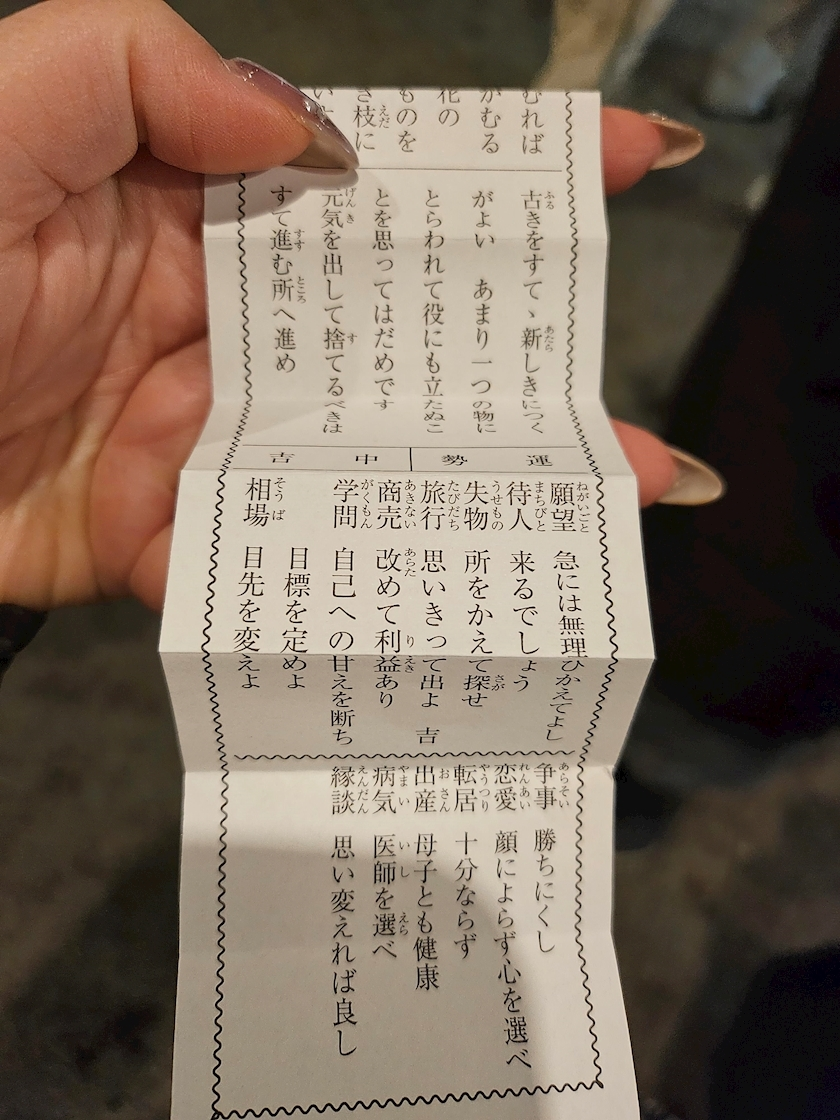 むれば
がむる
花の
ものを
き枝に
古きをすて、新しきにつく
がよい　あまり一つの物に
とらわれて役にも立たぬこ
とを思ってはだめです
元気を出して捨てるべきは
すて進む所へ進め
運勢　中吉
願望　急には無理ひかえてよし
待人　来るでしょう
失物　所をかえて探せ
旅行　思いきって出よ　吉
商売　改めて利益あり
学問　自己への甘えを断ち
目標を定めよ
相場　目先を変えよ
争事　勝ちにくし
恋愛　顔によらず心を選べ
転居　十分ならず
出産　母子とも健康
病気　医師を選べ
縁談　思い変えれば良し